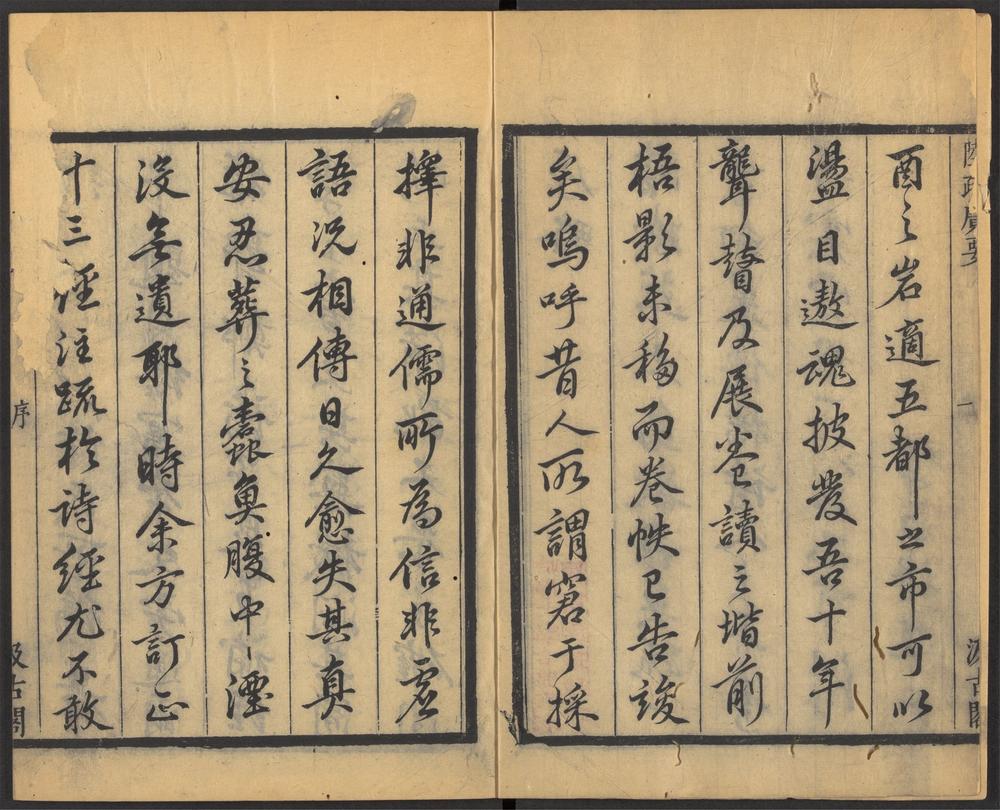 陸疏廣要
一
汲古閣
酉之岩適五都之市可以
盪目遨魂披發吾十年
聾瞽及展卷讀之堦前
梧影未移而卷帙已告竣
矣嗚呼昔人所謂窘于採
擇非通儒所為信非虛
語況相傳日久愈失其真
安忍葬之蠹魚腹中湮
沒無遺耶時余方訂正
十三經注疏於詩經尤不敢
序
汲古閣